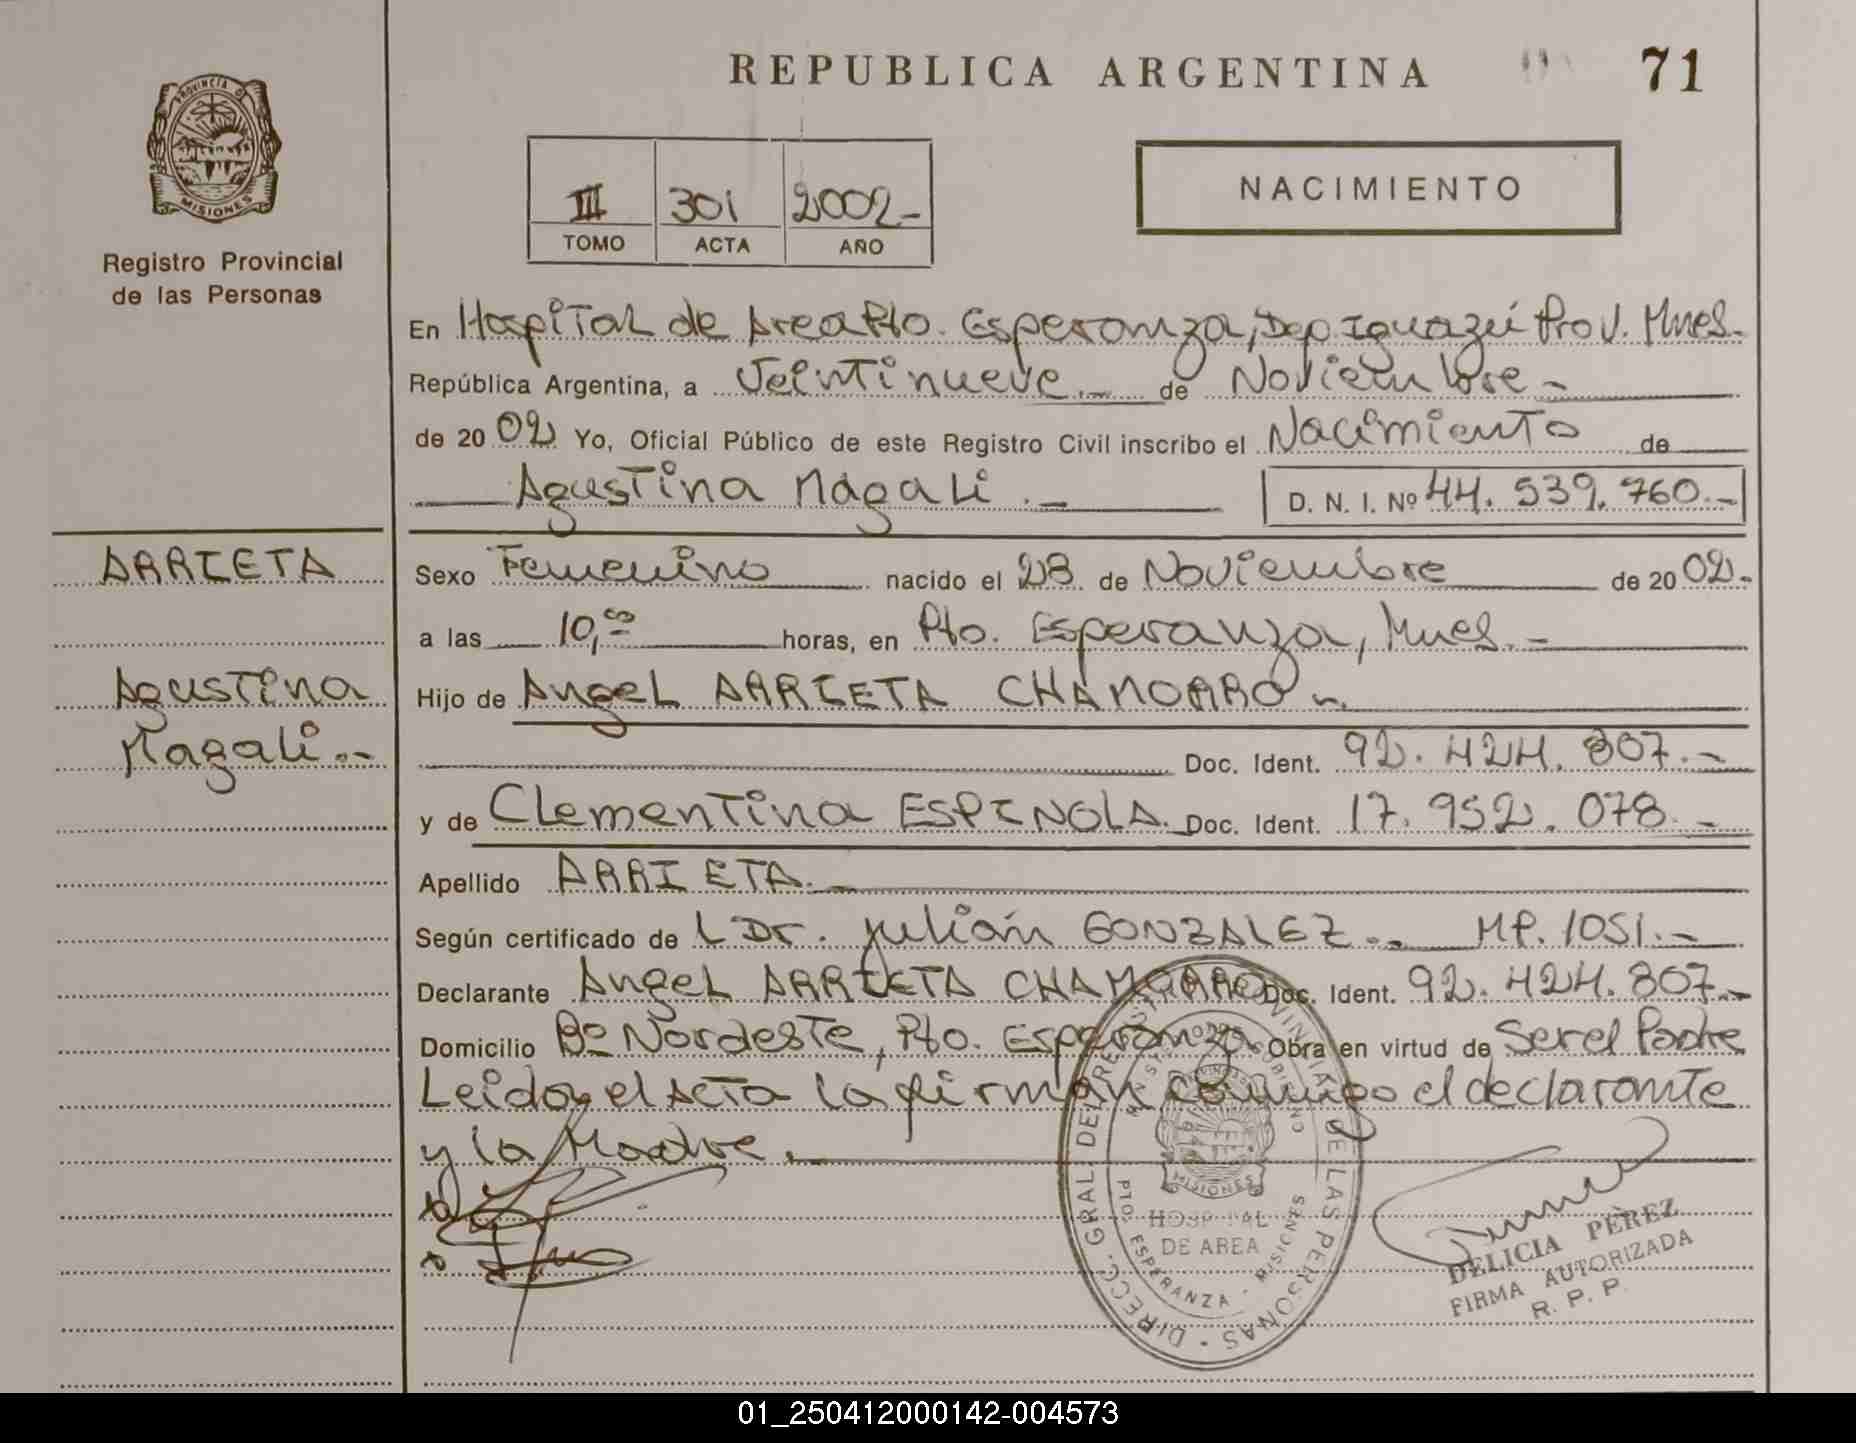 REPUBLICA ARGENTINA
71
PROVINCIA DE
MISIONES
Registro Provincial
de las Personas
III 301 2002-
TOMO ACTA AÑO
NACIMIENTO
En Hospital de Area Pto. Esperanza, Dep Iguazú Prov. Mnes.
República Argentina, a Veintinueve.- de Noviembre-
de 2002 Yo, Oficial Público de este Registro Civil inscribo el Nacimiento de
Agustina Magali.- D. N. I. Nº 44.539.760.-
ARRIETA
Agustina
Magali.-
Sexo Femenino nacido el 28 de Noviembre de 2002.-
a las 10,00 horas, en Pto. Esperanza, Mnes.-
Hijo de Angel ARRIETA CHAMORRO
Doc. Ident. 92.424.807.-
y de Clementina ESPINOLA. Doc. Ident. 17.952.078.-
Apellido ARRIETA.-
Según certificado de L Dr. Julián GONZALEZ.- MP. 1051.-
Declarante Angel ARRIETA CHAMORRO Doc. Ident. 92.424.807.-
Domicilio Bº Nordeste, Pto. Esperanza Obra en virtud de Ser el Padre
Leida el Acta la firman conmigo el declarante
y la Madre.
DIRECC. GRAL. DEL REGISTRO PROVINCIAL DE LAS PERSONAS
MISIONES
HOSPITAL
DE AREA
PTO. ESPERANZA - MISIONES
DELICIA PEREZ
FIRMA AUTORIZADA
R. P. P.
01_250412000142-004573